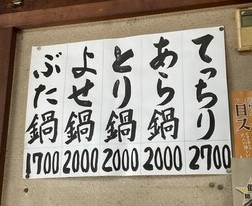 てっちり 2700
あら鍋 2000
とり鍋 2000
よせ鍋 2000
ぶた鍋 1700